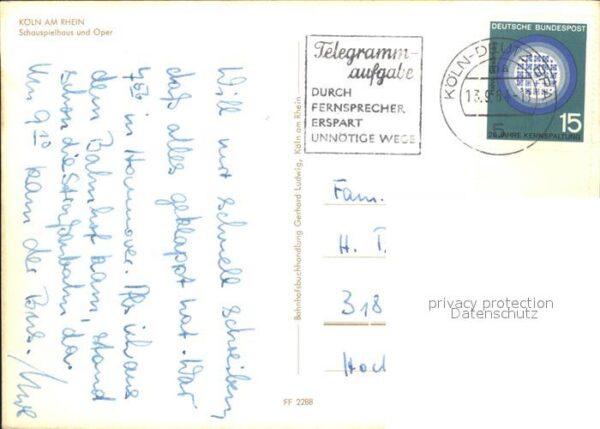 KÖLN AM RHEIN
Schauspielhaus und Oper
Will nur schnell schreiben,
daß alles geklappt hat. War
in Hannover. Als ich aus
dem Bahnhof kam, stand
schon die Straßenbahn da.
Um 9 10 kam der Bus.
Bahnhofsbuchhandlung Gerhard Ludwig, Köln am Rhein
FF 2288
Telegramm-
aufgabe
DURCH
FERNSPRECHER
ERSPART
UNNÖTIGE WEGE
KÖLN-DEUTZ
DEUTSCHE BUNDESPOST
15
JAHRE KERNSPALTUNG
Fam.
H. T
318
Hoch
privacy protection
Datenschutz